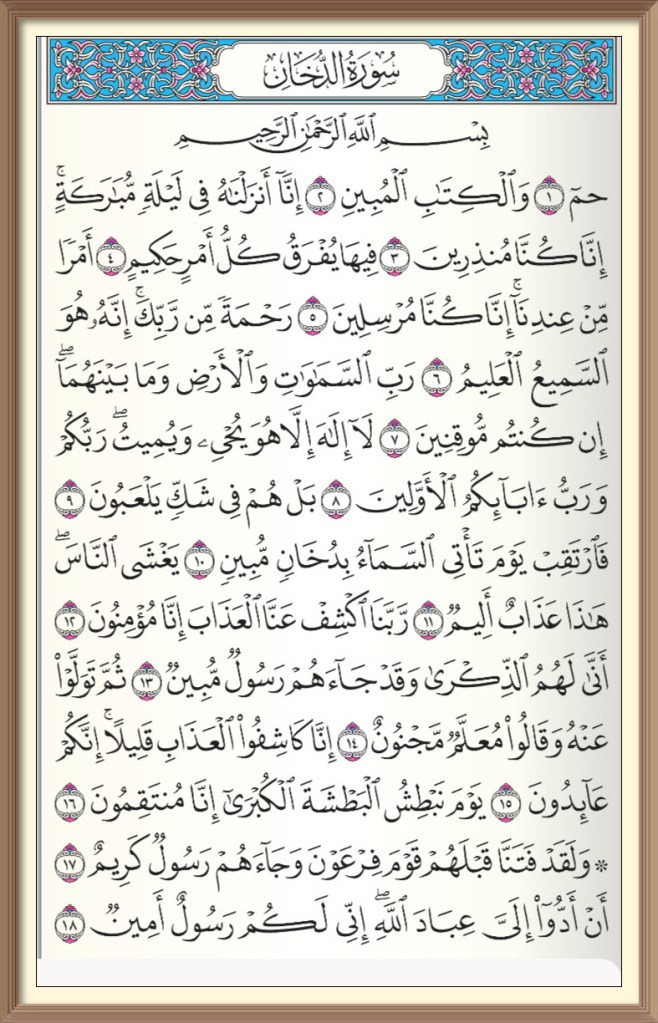 سُورَةُ الدُّخَانِ
بِسْمِ ٱللَّهِ ٱلرَّحْمَٰنِ ٱلرَّحِيمِ
حمٓ ١ وَٱلْكِتَٰبِ ٱلْمُبِينِ ٢ إِنَّآ أَنزَلْنَٰهُ فِى لَيْلَةٍ مُّبَٰرَكَةٍ ۚ
إِنَّا كُنَّا مُنذِرِينَ ٣ فِيهَا يُفْرَقُ كُلُّ أَمْرٍ حَكِيمٍ ٤ أَمْرًا
مِّنْ عِندِنَآ ۚ إِنَّا كُنَّا مُرْسِلِينَ ٥ رَحْمَةً مِّن رَّبِّكَ ۚ إِنَّهُۥ هُوَ
ٱلسَّمِيعُ ٱلْعَلِيمُ ٦ رَبِّ ٱلسَّمَٰوَٰتِ وَٱلْأَرْضِ وَمَا بَيْنَهُمَآ ۖ
إِن كُنتُم مُّوقِنِينَ ٧ لَآ إِلَٰهَ إِلَّا هُوَ يُحْىِۦ وَيُمِيتُ ۖ رَبُّكُمْ
وَرَبُّ ءَابَآئِكُمُ ٱلْأَوَّلِينَ ٨ بَلْ هُمْ فِى شَكٍّ يَلْعَبُونَ ٩
فَٱرْتَقِبْ يَوْمَ تَأْتِى ٱلسَّمَآءُ بِدُخَانٍ مُّبِينٍ ١٠ يَغْشَى ٱلنَّاسَ ۖ
هَٰذَا عَذَابٌ أَلِيمٌ ١١ رَّبَّنَا ٱكْشِفْ عَنَّا ٱلْعَذَابَ إِنَّا مُؤْمِنُونَ ١٢
أَنَّىٰ لَهُمُ ٱلذِّكْرَىٰ وَقَدْ جَآءَهُمْ رَسُولٌ مُّبِينٌ ١٣ ثُمَّ تَوَلَّوْا۟
عَنْهُ وَقَالُوا۟ مُعَلَّمٌ مَّجْنُونٌ ١٤ إِنَّا كَاشِفُوا۟ ٱلْعَذَابِ قَلِيلًا ۚ إِنَّكُمْ
عَآئِدُونَ ١٥ يَوْمَ نَبْطِشُ ٱلْبَطْشَةَ ٱلْكُبْرَىٰٓ إِنَّا مُنتَقِمُونَ ١٦
* وَلَقَدْ فَتَنَّا قَبْلَهُمْ قَوْمَ فِرْعَوْنَ وَجَآءَهُمْ رَسُولٌ كَرِيمٌ ١٧
أَنْ أَدُّوٓا۟ إِلَىَّ عِبَادَ ٱللَّهِ ۖ إِنِّى لَكُمْ رَسُولٌ أَمِينٌ ١٨